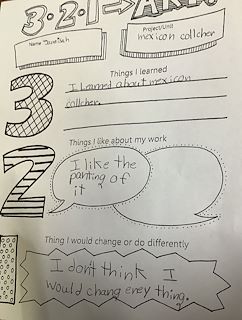 3·2·1→ART
Project/Unit
Name
mexican collcher
Things I learned
3
I Learned about mexican
collcher.
Things I like about my work
2
I like the
panting of
it
Thing I would change or do differently
1
I dont think I
would chang eney thing.